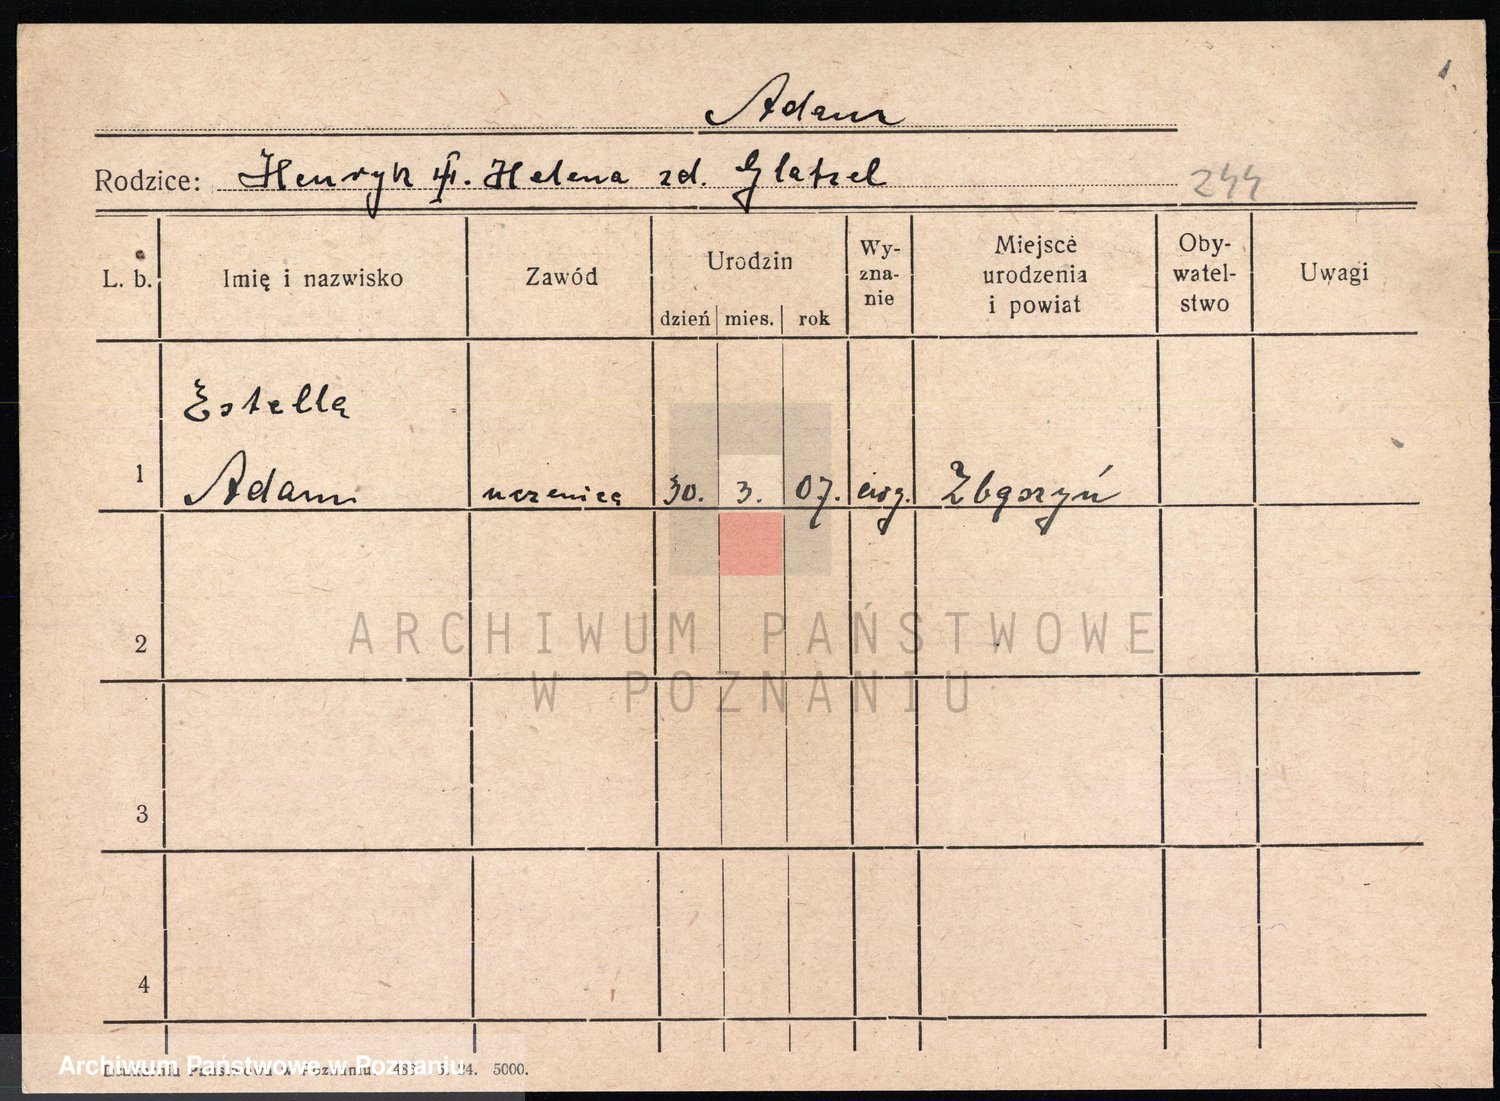 Adam
Rodzice: Henryk i. Helena zd. Glatzel
244
L. b. Imię i nazwisko Zawód Urodzin dzień mies. rok Wy-zna-nie Miejsce urodzenia i powiat Oby-watel-stwo Uwagi
Estella
1 Adam uczenica 30. 3. 07. ewg. Zbąszyń
2
3
4
ARCHIWUM PAŃSTWOWE
W POZNANIU
Archiwum Państwowe w Poznaniu
Drukarnia Państwowa w Poznaniu. 5000.